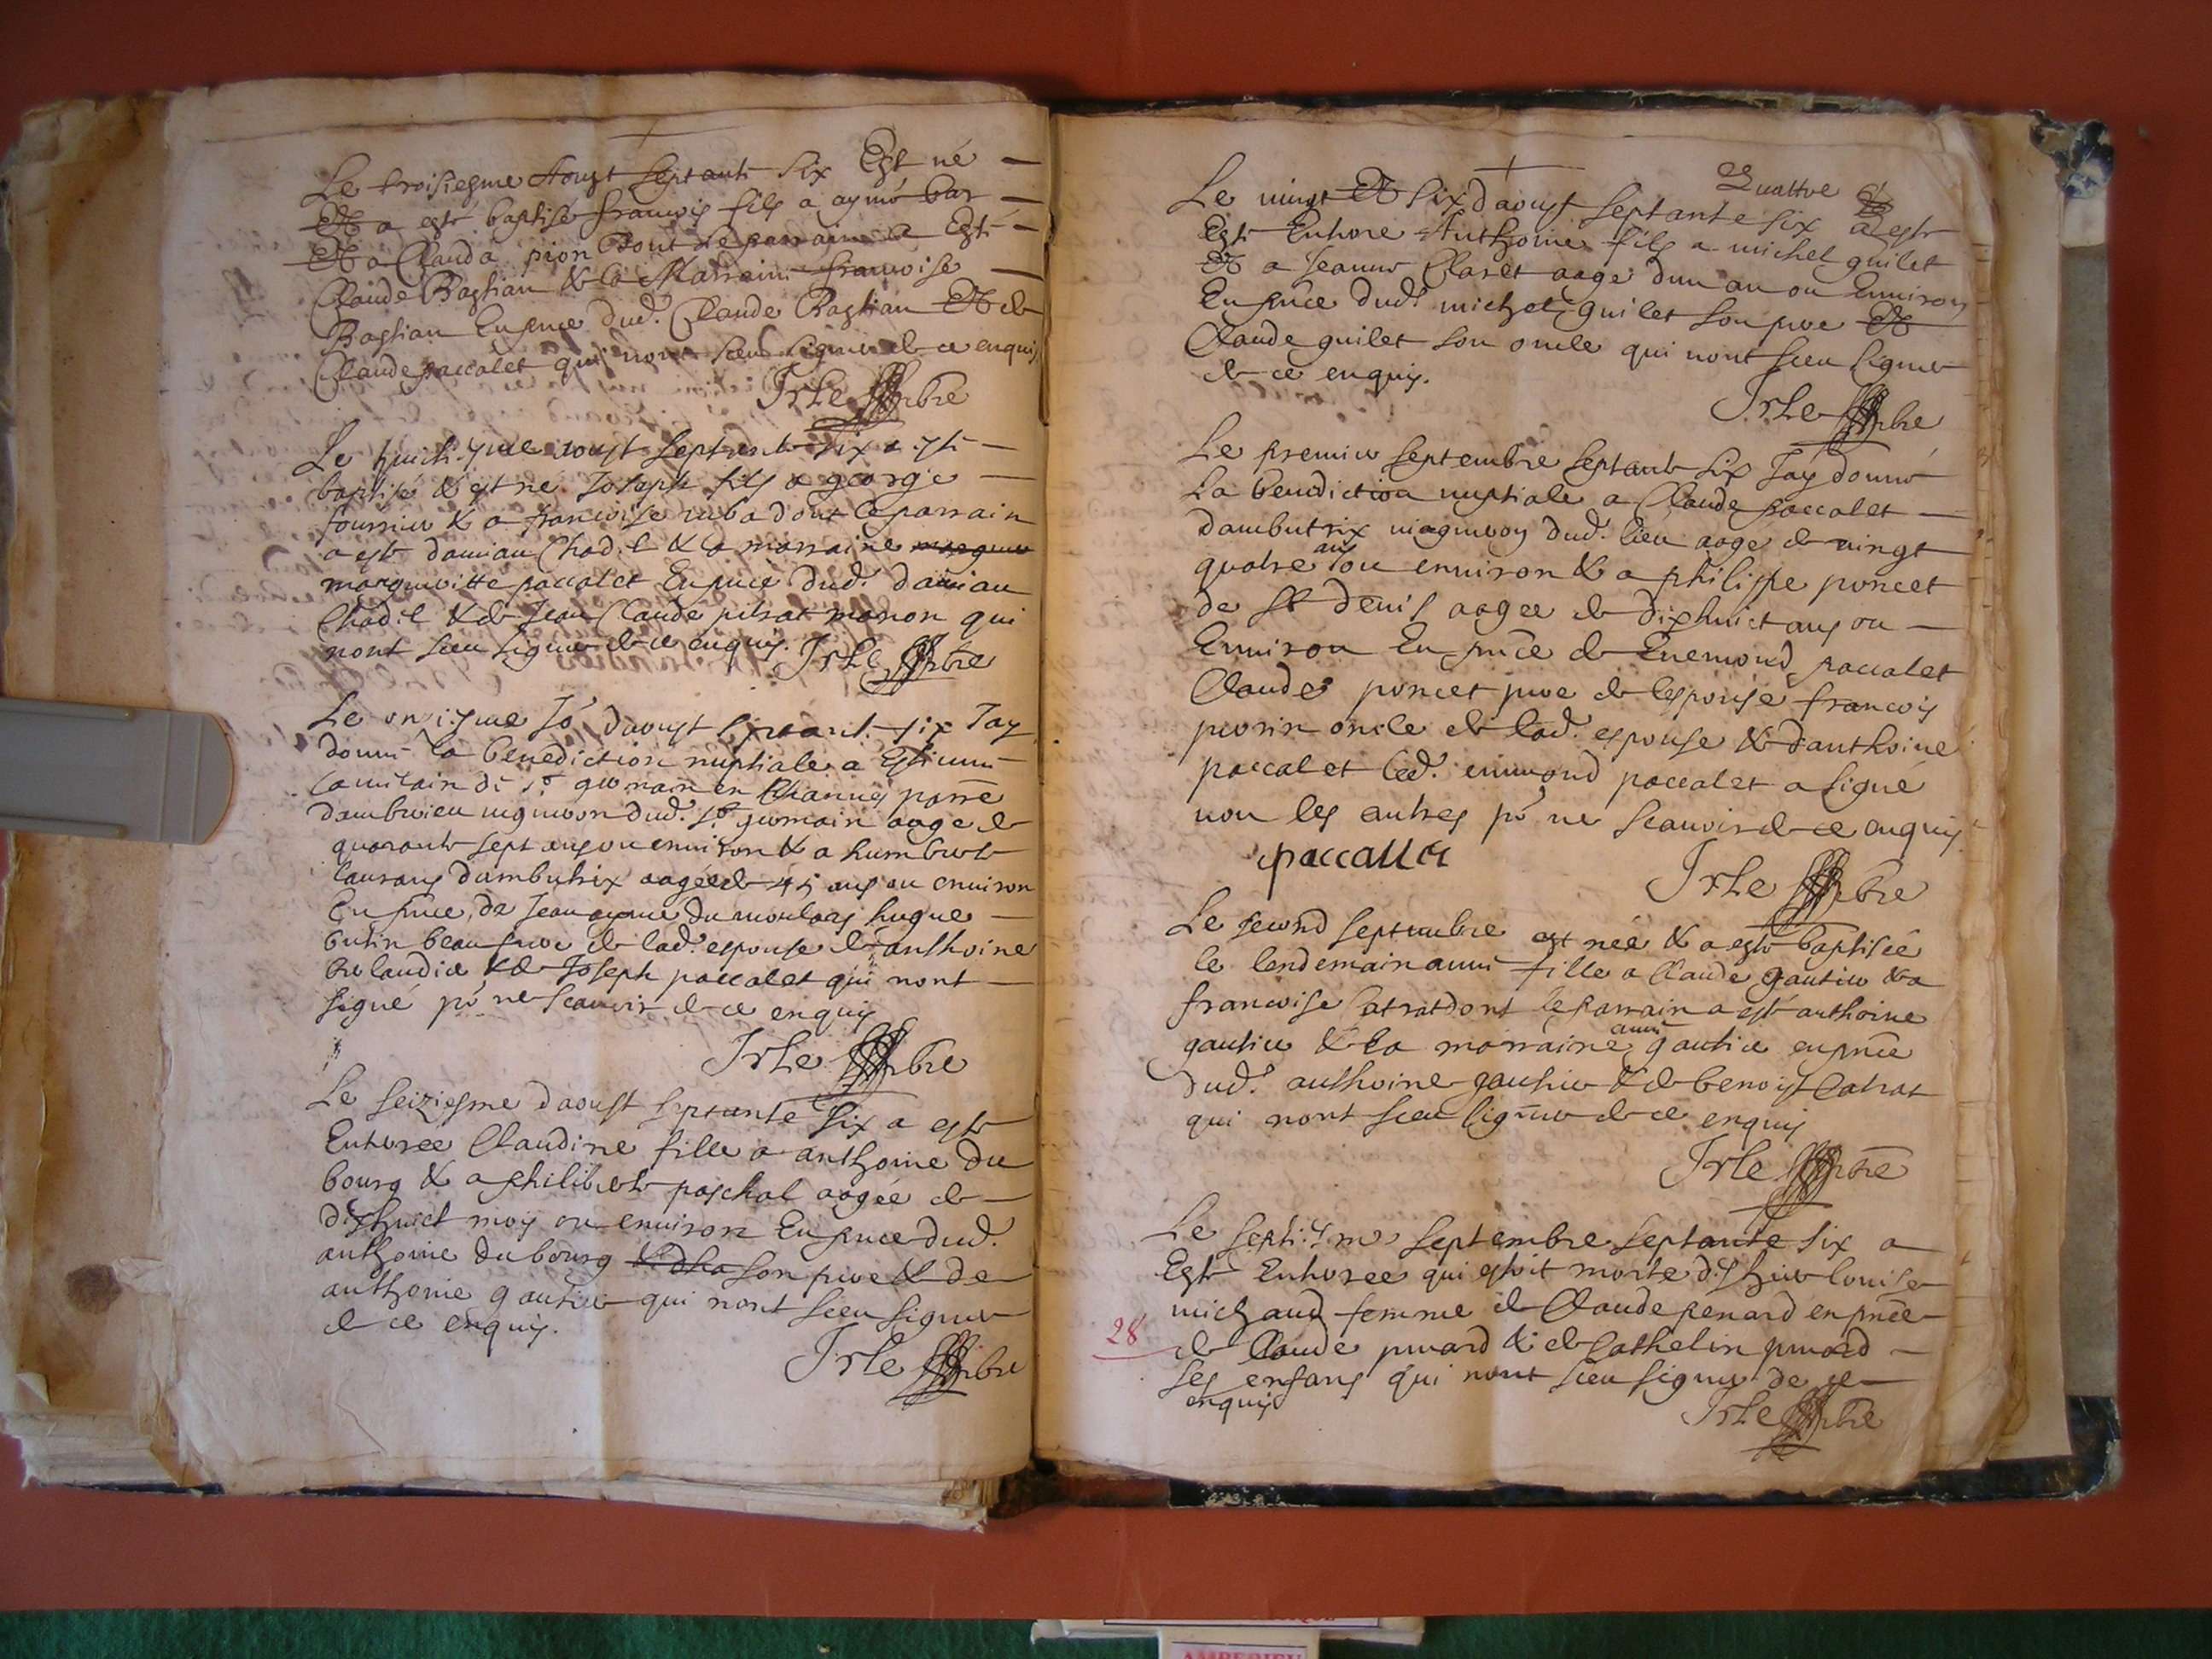 Le troisiesme Aoust septante six Est né
Et a esté baptisé francois fils a aymé bar
Et a Clauda pion Dont le parrain a Esté
Claude Bastian & la Marraine francoise
Bastian En pnce dud. Claude Bastian Et de
Claude paccalet qui nont sceu signer de ce enquis
Irle pbre
Le huictiesme aoust septante six a esté
baptisé & est né Joseph fils a george
fournier & a francoise dont le parrain
a esté damian & la marraine
margueritte paccalet En pnce dud. damian
& de Jean Claude qui
nont sceu signer de ce enquis. Irle pbre
Le onziesme Jo. daoust septante six Jay
donné la benediction nuptiale a Estienne
de St germain en
vigneron dud. St germain aagé de
quarante sept ans ou environ & a humberte
dambutrix aagée de 45 ans ou environ
En pnce de Jean ayme du hugue
butin beaufrere de lad. espouse & anthoine
& de Joseph paccalet qui nont
signé po. ne scauoir de ce enquis
Irle pbre
Le seiziesme daoust septante six a esté
Enteree Claudine fille a anthoine du
bourg & a philiberte paschal aagée de
dixhuict mois ou environ En pnce dud.
anthoine du bourg son pere & de
anthoine gautier qui nont sceu signer
de ce enquis.
Irle pbre
Quattre
Le vingt Et six daoust septante six a esté
Esté Enterre Anthoine fils a michel guilet
Et a Jeanne Claret aagé dun an ou Environ
En pnce dud. michel guilet son pere Et
Claude guilet son oncle qui nont sceu signer
de ce enquis.
Irle pbre
Le premier septembre septante six Jay donné
la benediction nuptiale a Claude paccalet
dambutrix vigneron dud. lieu aagé de vingt
quatre ans ou environ & a philippe poncet
de St denis aagee de dixhuict ans ou
Environ En pnce de Enemond paccalet
Claude poncet pere de lespouse francois
perrin oncle de lad. espouse & danthoine
paccalet led. enimond paccalet a signé
non les autres po. ne scauoir de ce enquis
paccallet
Irle pbre
Le second septembre est née & a esté baptisée
le lendemain anne fille a Claude gautier & a
francoise catrat dont le parrain a esté anthoine
gautier & la marraine anne gautier en pnce
dud. anthoine gautier & de benoist Catrat
qui nont sceu signer de ce enquis
Irle pbre
Le septiesme septembre septante six a
Esté Enteree qui estoit morte dhier louise
michaud femme de Claude penard en pnce
28
de Claude penard & de Cathelin penard
ses enfans qui nont sceu signer de ce
enquis
Irle pbre